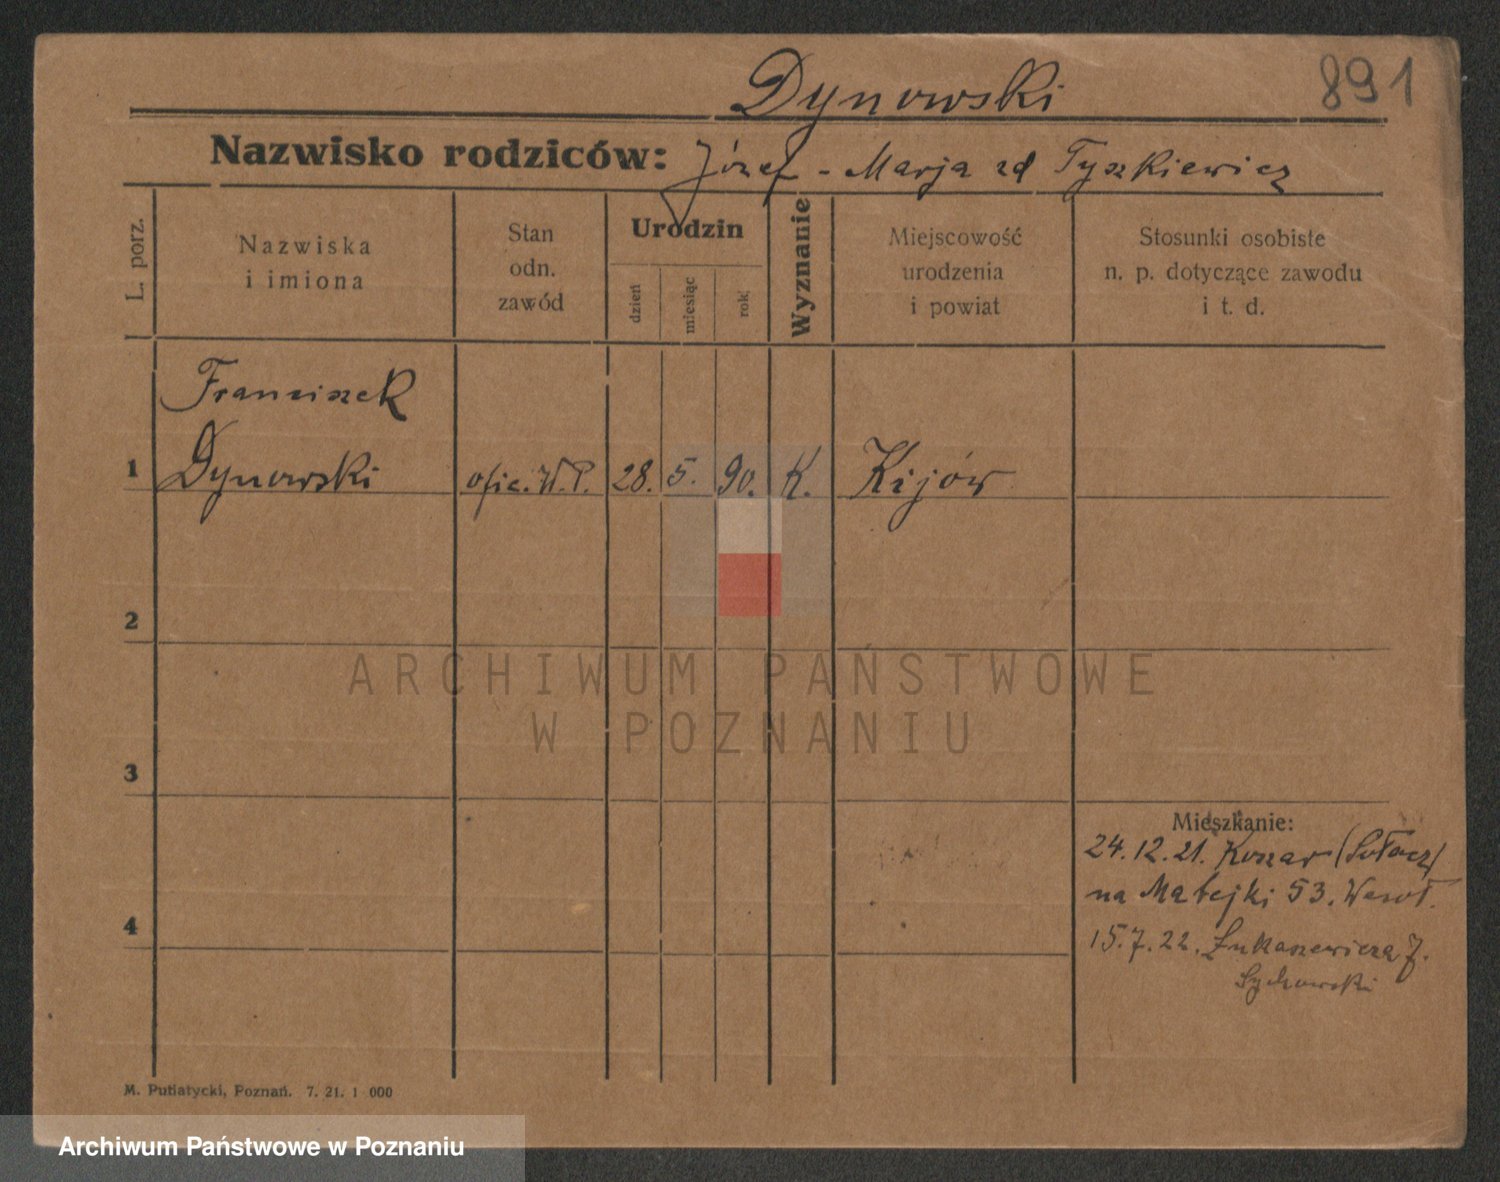 891
Dynowski
Nazwisko rodziców: Józef - Marja zd Tyszkiewicz
L. porz.
Nazwiska
i imiona
Stan
odn.
zawód
Urodzin
dzień
miesiąc
rok
Wyznanie
Miejscowość
urodzenia
i powiat
Stosunki osobiste
n. p. dotyczące zawodu
i t. d.
Franciszek
1 Dynowski ofic. W.P. 28. 5. 90. K. Kijów
2
ARCHIWUM PAŃSTWOWE
W POZNANIU
3
Mieszkanie:
24.12.21. Koszar (Sołacz)
na Matejki 53. Wesoł.
4
15.7.22. Łukaszewicza 7.
M. Putiatycki, Poznań. 7. 21. 1 000
Archiwum Państwowe w Poznaniu